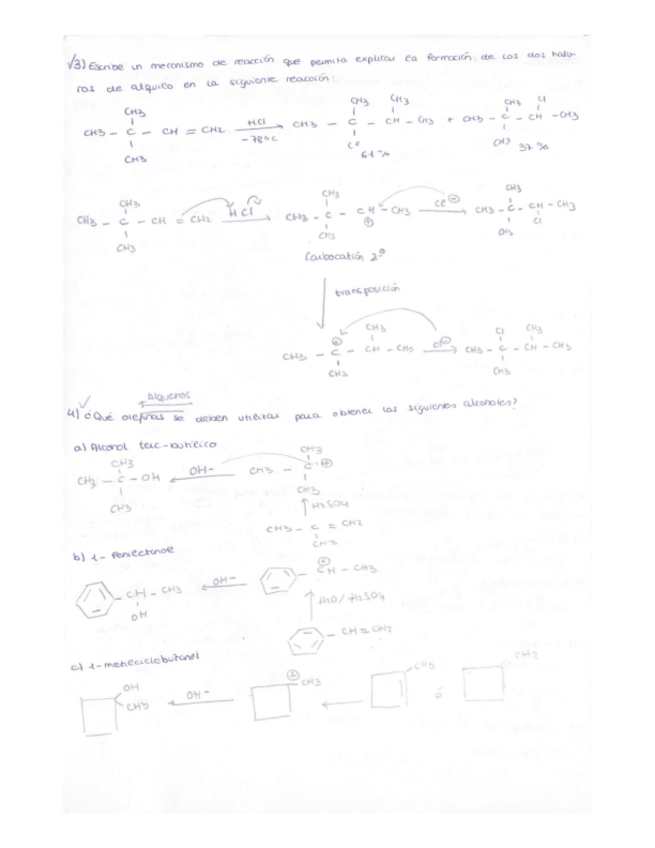 √3) Escribe un mecanismo de reacción que permita explicar la formación de los dos halu-
ros de alquilo en la siguiente reacción:
CH3 CH3 CH3 CH3 Cl
CH3 - C - CH = CH2 HCl CH3 - C - CH - CH3 + CH3 - C - CH - CH3
CH3 -78ºC Cl CH3
61 % 37 %
CH3 CH3 CH3
CH3 - C - CH = CH2 H Cl CH3 - C - CH - CH3 Cl⊖ CH3 - C - CH - CH3
CH3 CH3 ⊕ CH3 Cl
Carbocatión 2º
transposición
CH3 Cl CH3
⊕
CH3 - C - CH - CH3 Cl⊖ CH3 - C - CH - CH3
CH3 CH3
Alquenos
4) ¿Qué olefinas se deben utilizar para obtener los siguientes alcoholes?
a) Alcohol terc-butílico
CH3 CH3
CH3 - C - OH OH- CH3 - C ⊕
CH3 CH3
H2SO4
CH3 - C = CH2
CH3
b) 1-feniletanol
⊕
CH - CH3 OH- CH - CH3
OH
H2O/H2SO4
CH = CH2
c) 1-metilciclobutanol
OH ⊕ CH3 CH2
CH3 OH- CH3 ó